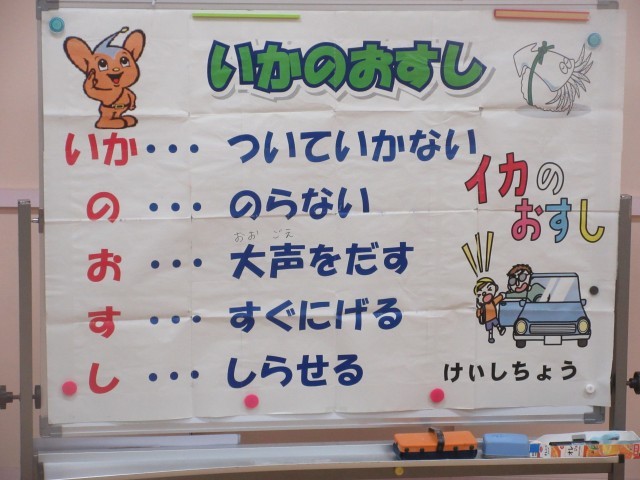 いかのおすし
いか・・・ ついていかない
の ・・・ のらない
おお ごえ
お ・・・ 大声をだす
す ・・・ すぐにげる
し ・・・ しらせる
イカの
おすし
けいしちょう